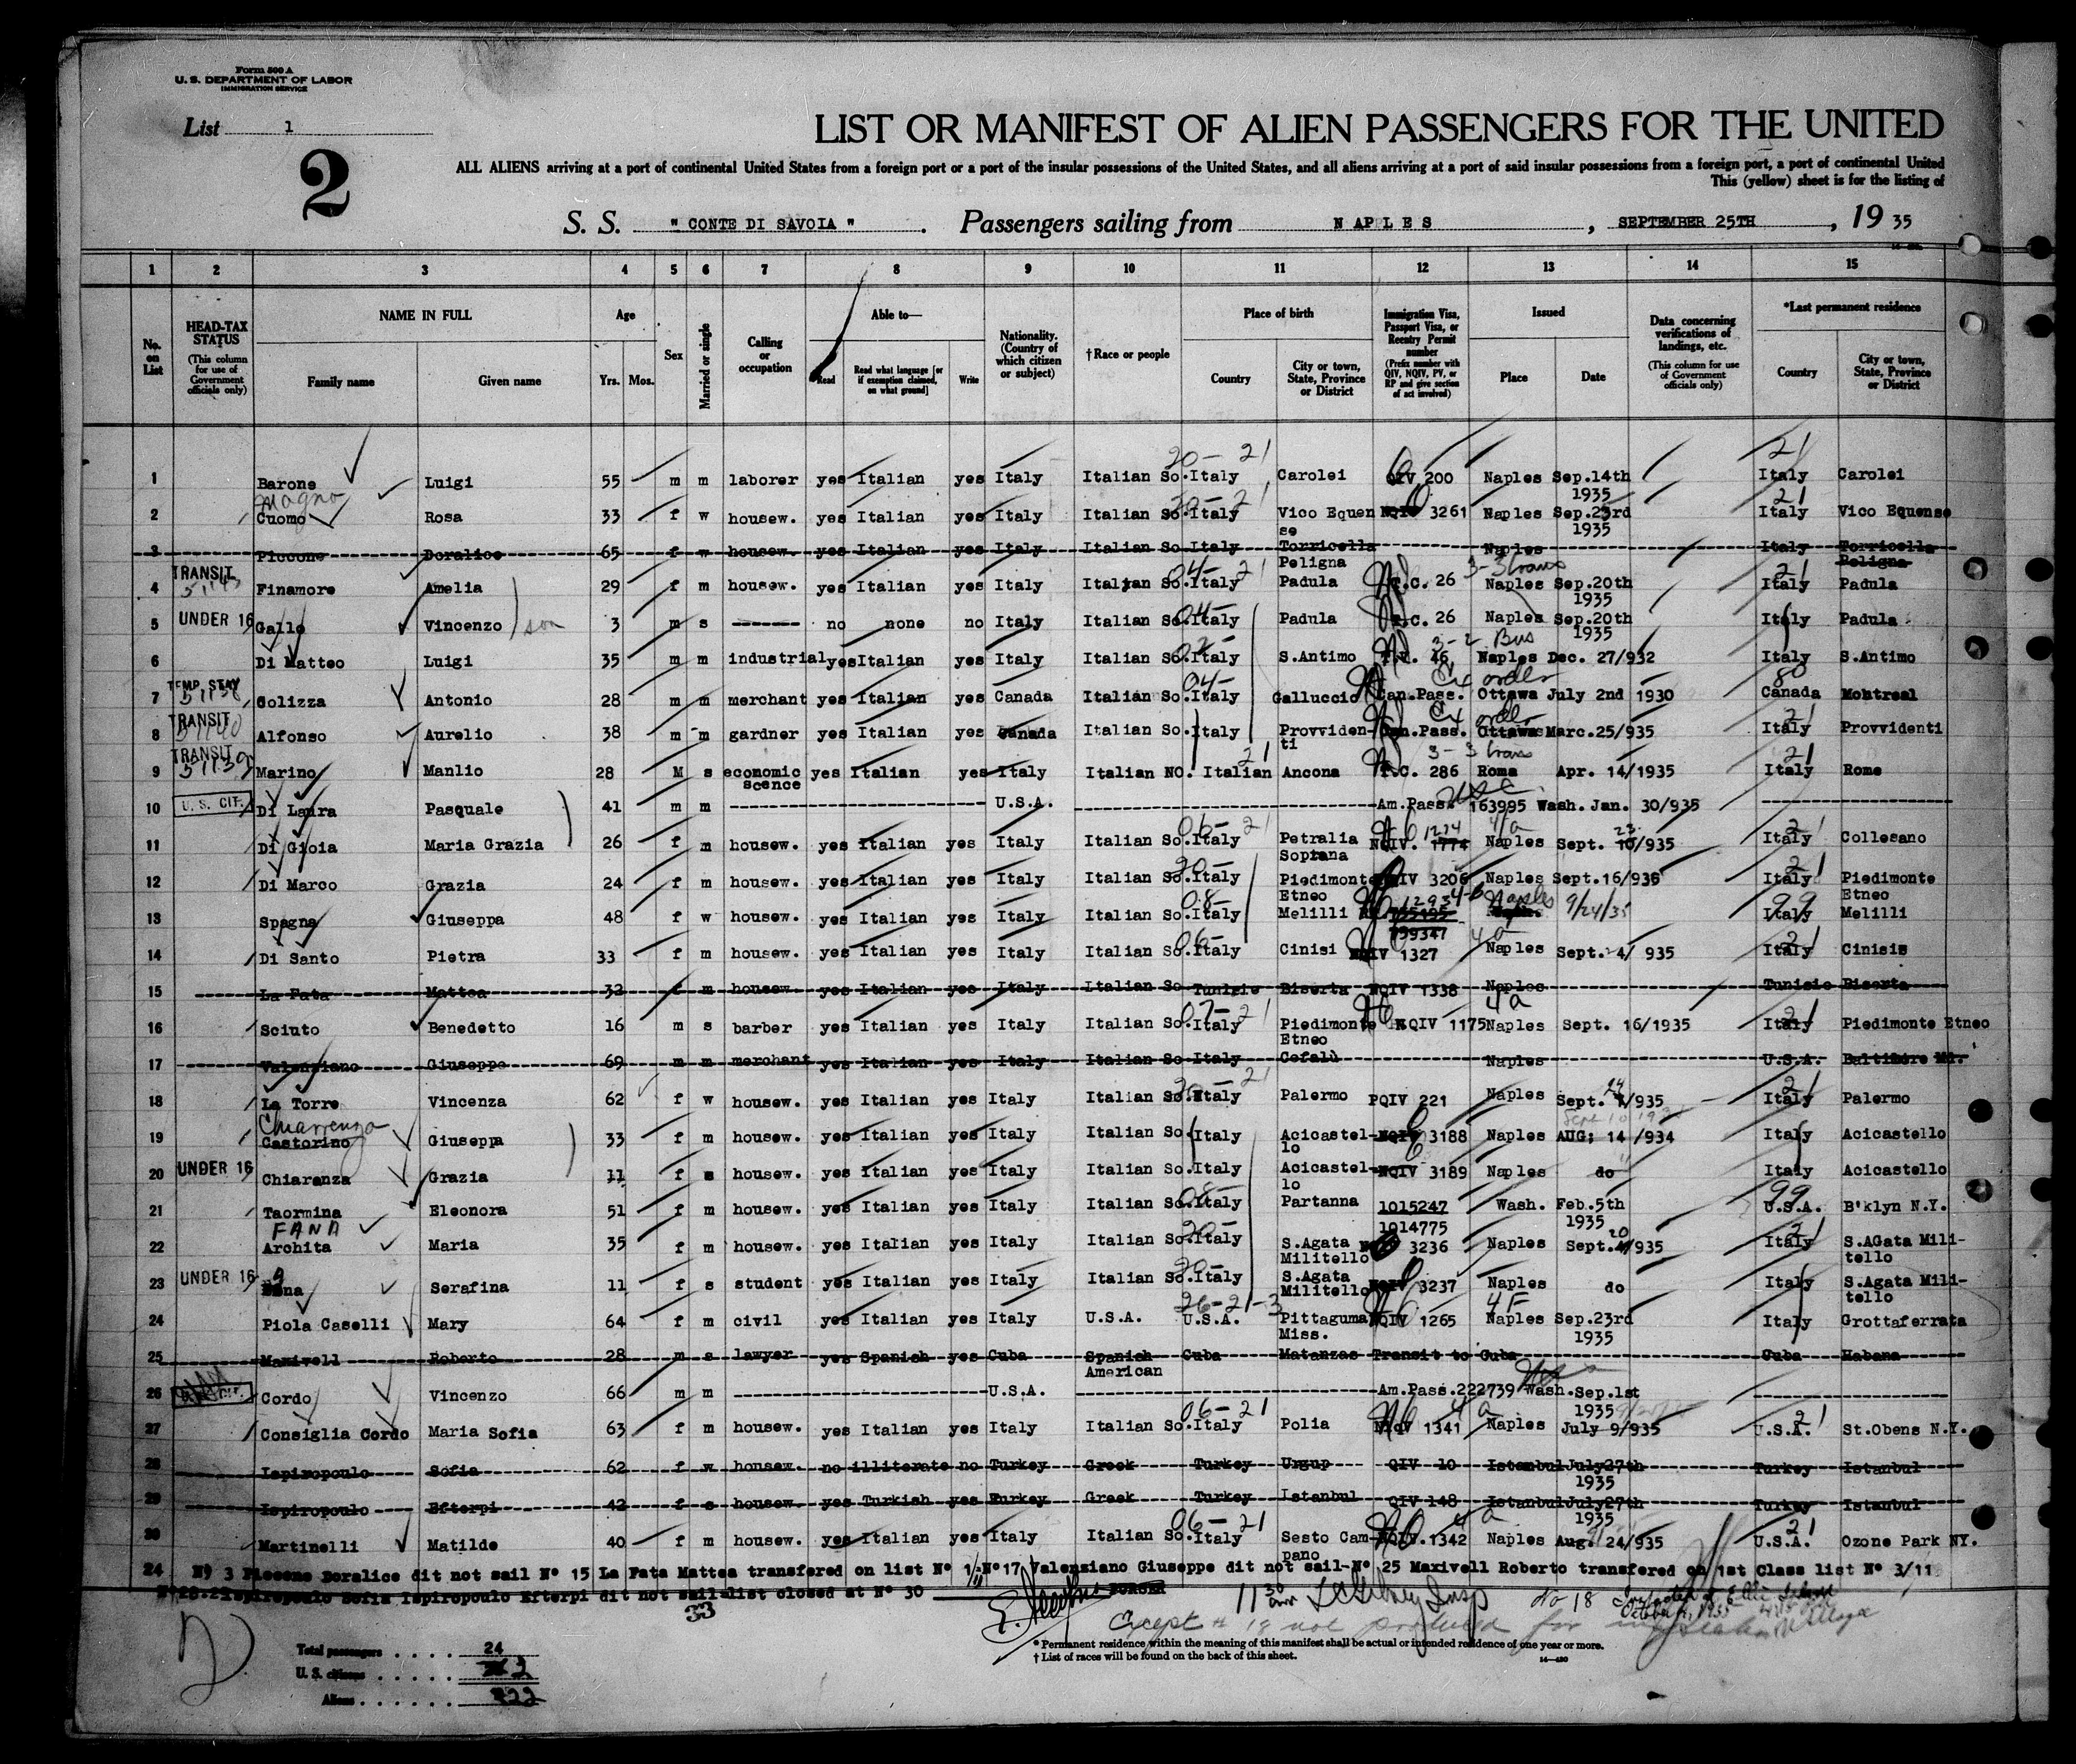 Form 500 A
U. S. DEPARTMENT OF LABOR
IMMIGRATION SERVICE
List 1
2
LIST OR MANIFEST OF ALIEN PASSENGERS FOR THE UNITED
ALL ALIENS arriving at a port of continental United States from a foreign port or a port of the insular possessions of the United States, and all aliens arriving at a port of said insular possessions from a foreign port, a port of continental United
This (yellow) sheet is for the listing of
S. S. " CONTE DI SAVOIA " . Passengers sailing from NAPLES , SEPTEMBER 25TH , 19 35
1 2 3 4 5 6 7 8 9 10 11 12 13 14 15
No. on List
HEAD-TAX STATUS (This column for use of Government officials only)
NAME IN FULL Family name Given name
Age Yrs. Mos.
Sex
Married or single
Calling or occupation
Able to— Read Read what language [or if exemption claimed, on what ground] Write
Nationality. (Country of which citizen or subject)
†Race or people
Place of birth Country City or town, State, Province or District
Immigration Visa, Passport Visa, or Reentry Permit number (Prefix number with QIV, NQIV, PV, or RP and give section of act involved)
Issued Place Date
Data concerning verifications of landings, etc. (This column for use of Government officials only)
*Last permanent residence Country City or town, State, Province or District
20- 21 21
1 Barone Luigi 55 m m laborer yes Italian yes Italy Italian So. Italy Carolei QIV 200 Naples Sep.14th 1935 Italy Carolei
Magno
2 Cuomo Rosa 33 f w housew. yes Italian yes Italy Italian So. Italy Vico Equense NQIV 3261 Naples Sep.23rd 1935 Italy Vico Equense
3 Piccone Doralice 65 f w housew. yes Italian yes Italy Italian So Italy Torricella Peligna Naples Italy Torricella Peligna
TRANSIT 04- 21 3-3 trans 21
4 Finamore Amelia 29 f m housew. yes Italian yes Italy Italian So. Italy Padula T.C. 26 Naples Sep.20th 1935 Italy Padula
UNDER 16 son 04-
5 Gallo Vincenzo 3 m s ------- no none no Italy Italian So. Italy Padula T.C. 26 Naples Sep.20th 1935 Italy Padula
02- 3-2 Bus
6 Di Matteo Luigi 35 m m industrial yes Italian yes Italy Italian So. Italy S.Antimo T.V. 46 Naples Dec. 27/932 Italy S.Antimo
TEMP. STAY 51138 04- Ex order 80
7 Colizza Antonio 28 m m merchant yes Italian yes Canada Italian So. Italy Galluccio Can.Pass. Ottawa July 2nd 1930 Canada Montreal
TRANSIT 51140 Ex order 21
8 Alfonso Aurelio 38 m m gardner yes Italian yes Canada Italian So. Italy Provvidenti Can.Pass. Ottawa Marc.25/935 Italy Provvidenti
TRANSIT 51139 21 3-3 trans 21
9 Marino Manlio 28 M s economic scence yes Italian yes Italy Italian NO. Italian Ancona T.C. 286 Roma Apr. 14/1935 Italy Rome
U. S. CIT. USC
10 Di Laura Pasquale 41 m m U.S.A. Am.Pass. 163995 Wash. Jan. 30/935
06- 21 1274 4a 23 21
11 Di Gioia Maria Grazia 26 f m housew. yes Italian yes Italy Italian So. Italy Petralia Soptana NQIV. 1774 Naples Sept. 10/935 Italy Collesano
20- 21
12 Di Marco Grazia 24 f m housew. yes Italian yes Italy Italian So. Italy Piedimonte Etneo NQIV 3206 Naples Sept.16/935 Italy Piedimonte Etneo
08- 1293 4-b Naples 9/24/35 99
13 Spagna Giuseppa 48 f w housew. yes Italian yes Italy Italian So. Italy Melilli 739347 Italy Melilli
06- 4a 21
14 Di Santo Pietra 33 f m housew. yes Italian yes Italy Italian So. Italy Cinisi NQIV 1327 Naples Sept. 4/ 935 Italy Cinisis
15 La Fata Mattea 32 f m housew yes Italian yes Italy Italian So Tunisie Biserta NQIV 1338 Naples Tunisie Biserta
07- 21 4a 21
16 Sciuto Benedetto 16 m s barber yes Italian yes Italy Italian So. Italy Piedimonte Etneo NQIV 1175 Naples Sept. 16/1935 Italy Piedimonte Etneo
17 Valenziano Giuseppe 69 m m merchant yes Italian yes Italy Italian So Italy Cefalù Naples U.S.A. Baltimore Md.
20- 21 24 21
18 La Torre Vincenza 62 f w housew. yes Italian yes Italy Italian So. Italy Palermo PQIV 221 Naples Sept. /935 Italy Palermo
Chiarenza
19 Castorino Giuseppa 33 f m housew. yes Italian yes Italy Italian So. Italy Acicastello NQIV 3188 Naples AUG; 14 /934 Italy Acicastello
UNDER 16
20 Chiarenza Grazia 11 f s housew. yes Italian yes Italy Italian So. Italy Acicastello NQIV 3189 Naples do Italy Acicastello
08- 99
21 Taormina Eleonora 51 f m housew. yes Italian yes Italy Italian So. Italy Partanna 1015247 1014775 Wash. Feb.5th 1935 U.S.A. B'klyn N.Y.
FANA 20- 20 21
22 Archita Maria 35 f m housew. yes Italian yes Italy Italian So. Italy S.Agata Militello 3236 Naples Sept. /935 Italy S.AGata Militello
UNDER 16 20-
23 Fana Serafina 11 f s student yes Italian yes Italy Italian So. Italy S.Agata Militello NQIV 3237 Naples do Italy S.Agata Militello
26-21-3 4F
24 Piola Caselli Mary 64 f m civil yes Italian yes Italy U.S.A. U.S.A. Pittaguma Miss. NQIV 1265 Naples Sep.23rd 1935 Italy Grottaferrata
25 Maxivell Roberto 28 m s lawyer yes Spanish yes Cuba Spanish American Cuba Matanzas Transit to Cuba Cuba Habana
U. S. CIT.
26 Cordo Vincenzo 66 m m U.S.A. Am.Pass.222739 Wash. Sep.1st 1935
06-21 4a 21
27 Consiglia Cordo Maria Sofia 63 f m housew. yes Italian yes Italy Italian So. Italy Polia NQIV 1341 Naples July 9/935 U.S.A. St.Obens N.Y.
28 Ispiropoulo Sofia 62 f w housew. no illiterate no Turkey Greek Turkey Urgup QIV 10 Istanbul July27th 1935 Turkey Istanbul
29 Ispiropoulo Efterpi 42 f s housew. yes Turkish yes Turkey Greek Turkey Istanbul QIV 148 Istanbul July27th 1935 Turkey Istanbul
06- 21 4a 21
30 Martinelli Matilde 40 f m housew. yes Italian yes Italy Italian So. Italy Sesto Campano NQIV.1342 Naples Aug. 24/935 U.S.A. Ozone Park NY.
24 Nº 3 Piccone Doralice dit not sail Nº 15 La Fata Mattea transfered on list Nº 1/ Nº17 Valenziano Giuseppe dit not sail-Nº 25 Maxivell Roberto transfered on 1st Class list Nº 3/11
Nº28-29 Ispiropoulo Sofia Ispiropoulo Efterpi dit not sail-list closed at Nº 30
33
11 30 am Insp No 18 Inspected at Ellis Island October 1, 1935
Except # 18 not produced for inspection
* Permanent residence within the meaning of this manifest shall be actual or intended residence of one year or more.
† List of races will be found on the back of this sheet.
Total passengers . . . . 24
U. S. citizens . . . . . 2
Aliens . . . . . . 22